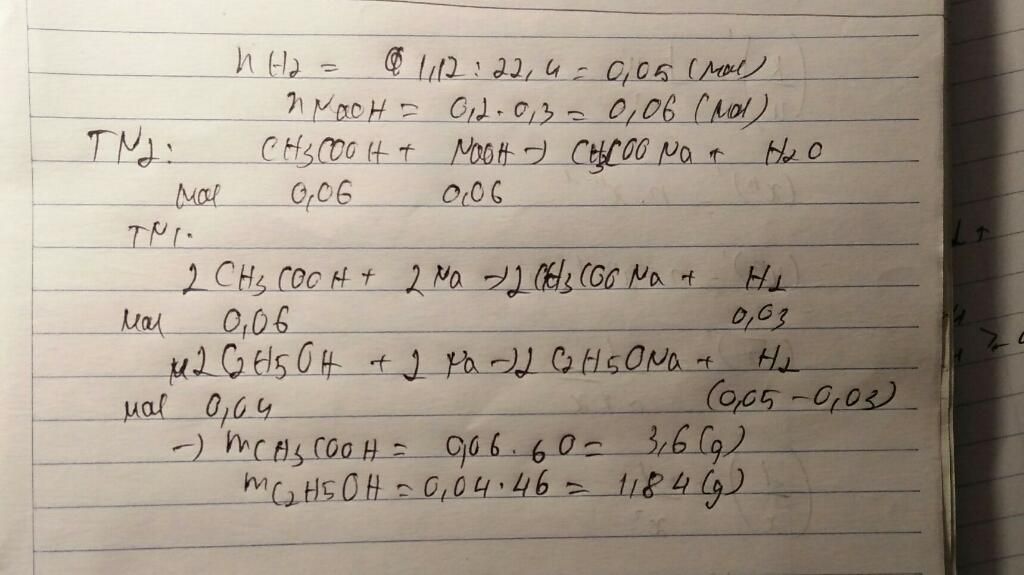 nH2 = 1,12 : 22,4 = 0,05 (mol)
nNaOH = 0,2 . 0,3 = 0,06 (mol)
TN2: CH3COOH + NaOH -> CH3COONa + H2O
mol 0,06 0,06
TN1.
2 CH3COOH + 2 Na -> 2 CH3COONa + H2
mol 0,06 0,03
2 C2H5OH + 2 Na -> 2 C2H5ONa + H2
mol 0,04 (0,05 - 0,03)
-> mCH3COOH = 0,06 . 60 = 3,6 (g)
mC2H5OH = 0,04 . 46 = 1,84 (g)